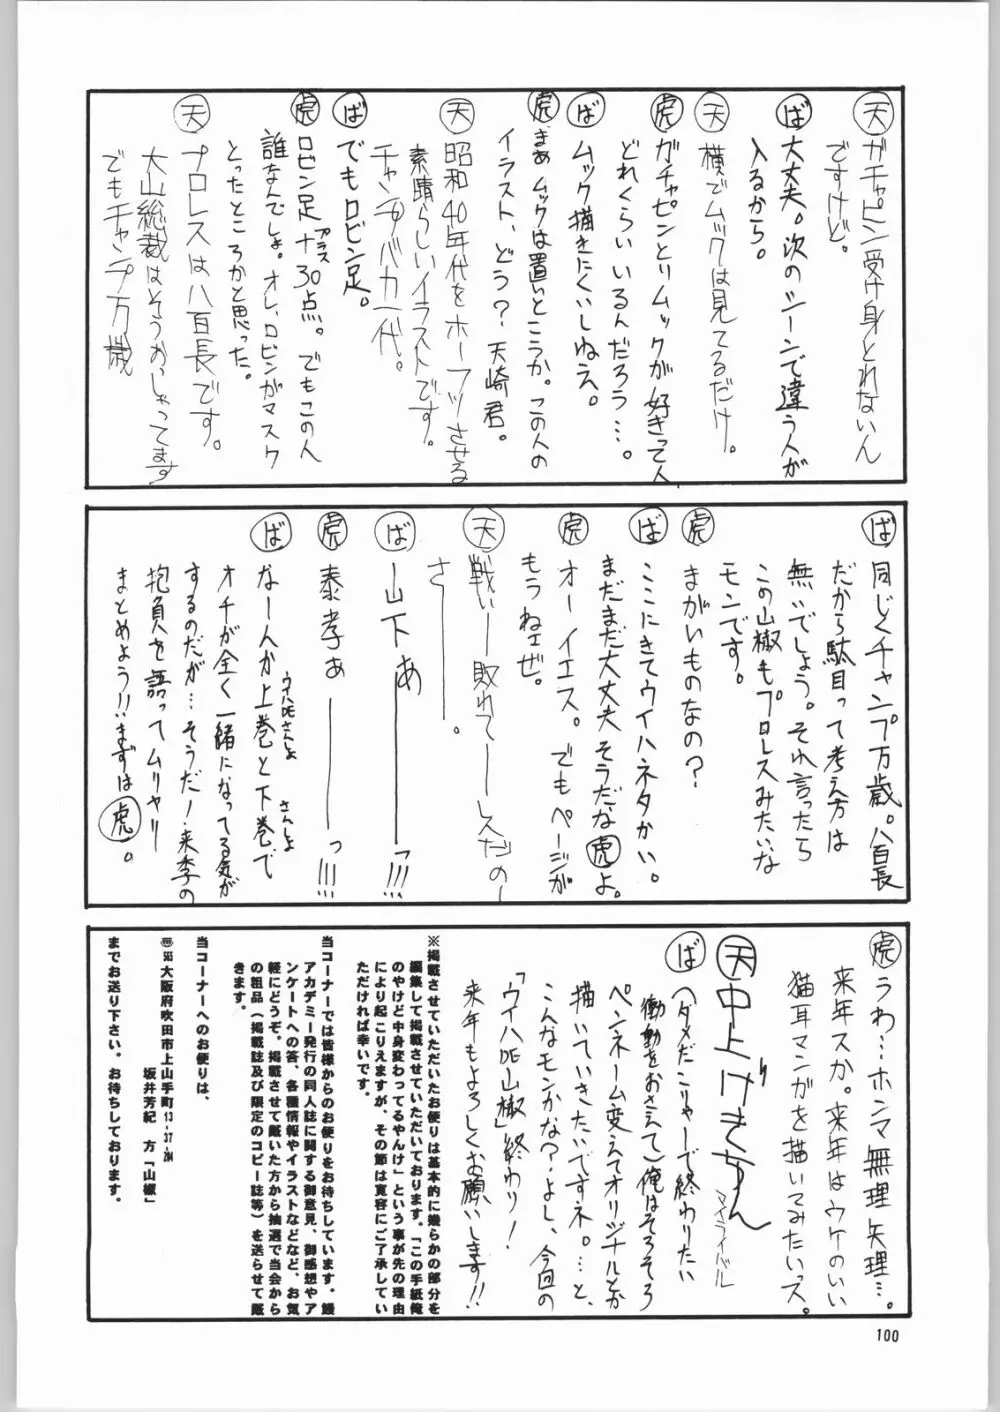 天 ガチャピン受け身とれないん
ですけど。
ば 大丈夫。次のシーンで違う人が
入るから。
天 横でムックは見てるだけ。
虎 ガチャピンとムックが好きって人
どれくらいいるんだろう…。
ば ムック描きにくいしねえ。
虎 まぁムックは置いとこうか。この人の
イラスト、どう?天崎君。
天 昭和40年代をホーフツさせる
素晴らしいイラストです。
チャンプバカ一代。
ば でもロビン足。
虎 ロビン足+プラス30点。でもこの人
誰なんでしょ。オレ、ロビンがマスク
とったところかと思った。
天 プロレスは八百長です。
大山総裁はそうおっしゃってます
でもチャンプ万歳
ば 同じくチャンプ万歳。八百長
だから駄目って考え方は
無いでしょう。それ言ったら
この山椒もプロレスみたいな
モンです。
虎 まがいものなの?
ば ここにきてウイハネタかい。
まだまだ大丈夫そうだな虎よ。
虎 オーイエス。でもページが
もうねェぜ。
天 戦い——敗れて——レスだの—
さ————。
ば —山下ぁ————っ!!!
虎 泰孝ぁ————っ!!!
ば なーんか上巻と下巻で
ウイハDEさんしょ さんしょ
オチが全く一緒になってる気が
するのだが…そうだ!来季の
抱負を語ってムリヤリ
まとめよう!!まずは虎。
虎 うわ…ホンマ無理矢理…。
来年スか。来年はウケのいい
猫耳マンガを描いてみたいっス。
天 中上げきちん
マイライバル
ば (ダメだこりゃーで終わりたい
衝動をおさえて)俺はそろそろ
ペンネーム変えてオリジナルとか
描いていきたいですネ。…と、
こんなモンかな?よし、今回の
「ウイハDE山椒」終わり!
来年もよろしくお願いします!!
※掲載させていただいたお便りは基本的に幾らかの部分を
編集して掲載させていただいております。「この手紙俺
のやけど中身変わってるやんけ」という事が先の理由
により起こりえますが、その節は寛容にご了承してい
ただければ幸いです。
当コーナーでは皆様からのお便りをお待ちしています。鰻
アカデミー発行の同人誌に関する御意見、御感想やア
ンケートへの答、各種情報やイラストなどなど、お気
軽にどうぞ。掲載させて戴いた方から抽選で当会から
の粗品(掲載誌及び限定のコピー誌等)を送らせて戴
きます。
当コーナーへのお便りは、
〒565 大阪府吹田市上山手町13-37-204
坂井芳紀 方「山椒」
までお送り下さい。お待ちしております。
100